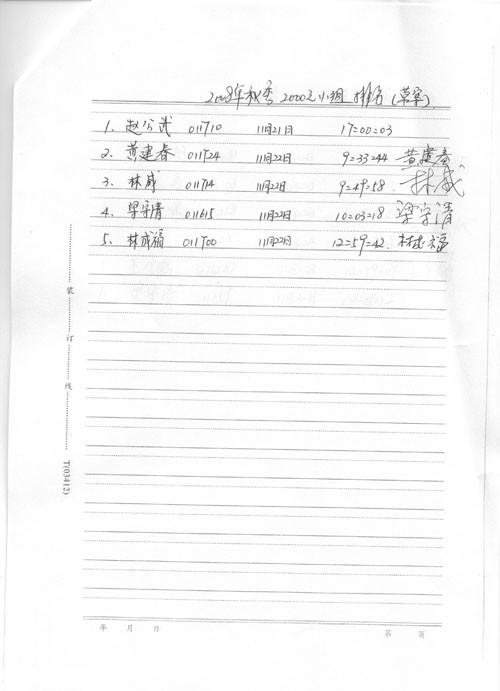 2008年秋季 2000元小组 排名(草案)
1. 赵公武 011710 11月21日 17=00=03
2. 黄建春 011724 11月22日 9=33=44 黄建春
3. 林威 011714 11月22日 9=49=58 林威
4. 梁守清 011615 11月22日 10=03=18 梁守清
5. 林成福 011700 11月22日 12=59=42. 林成福
装
订
线
T(03412)
年 月 日 第 页